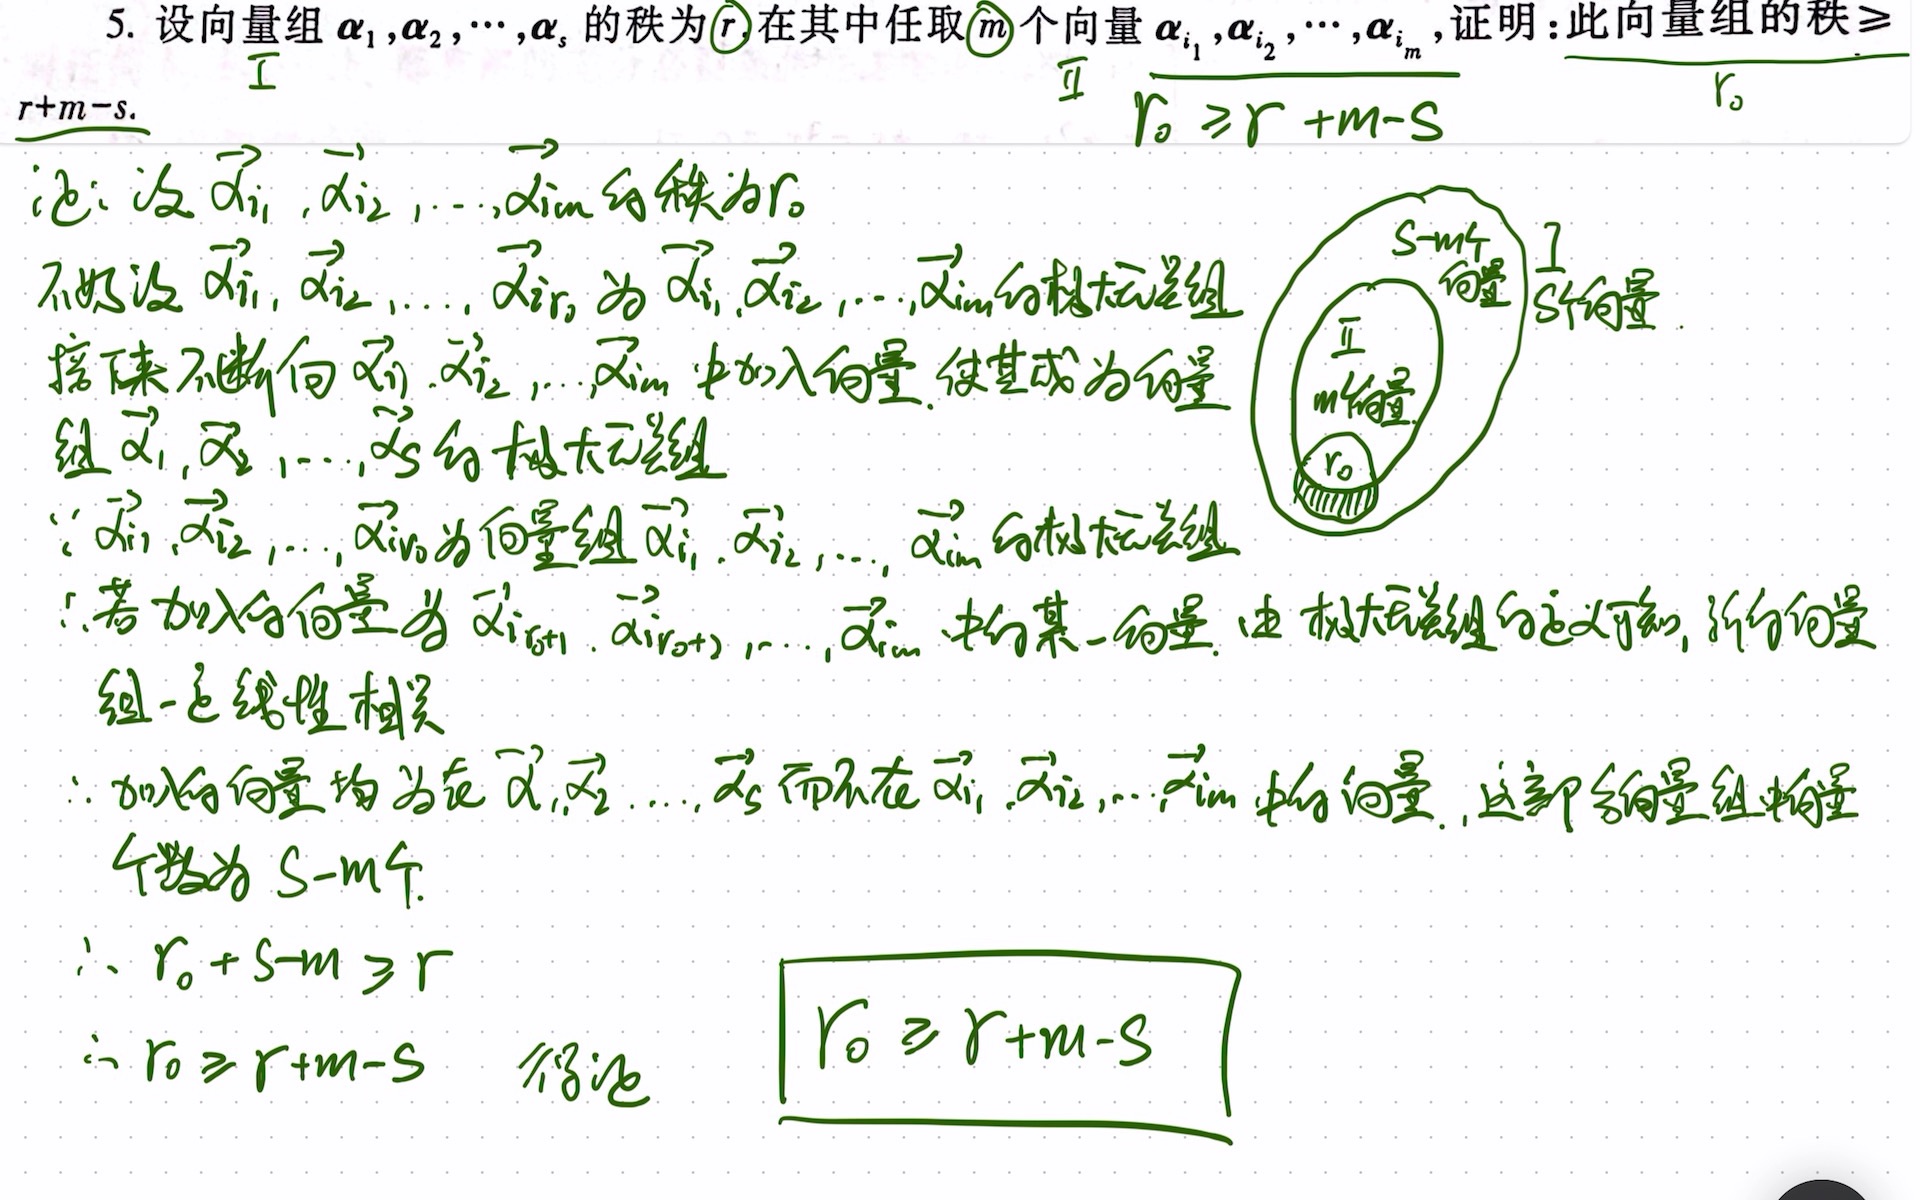 5. 设向量组 α₁,α₂,⋯,αₛ 的秩为 r,在其中任取 m 个向量 α_{i₁},α_{i₂},⋯,α_{i_m},证明:此向量组的秩≥
I II r₀
r+m-s.
r₀ ≥ r+m-s
证: 设 α⃗_{i1}, α⃗_{i2}, ⋯, α⃗_{im} 的秩为 r₀
不妨设 α⃗_{i1}, α⃗_{i2}, ⋯, α⃗_{ir₀} 为 α⃗_{i1}, α⃗_{i2}, ⋯, α⃗_{im} 的极大无关组
接下来不断向 α⃗_{i1}, α⃗_{i2}, ⋯, α⃗_{im} 中加入向量,使其成为向量
组 α⃗₁, α⃗₂, ⋯, α⃗s 的极大无关组
∵ α⃗_{i1}, α⃗_{i2}, ⋯, α⃗_{ir₀} 为向量组 α⃗_{i1}, α⃗_{i2}, ⋯, α⃗_{im} 的极大无关组
∴ 若加入的向量为 α⃗_{ir₀+1}, α⃗_{ir₀+2}, ⋯, α⃗_{im} 中的某一向量,由极大无关组的定义可知,新的向量
组一定线性相关
∴ 加入的向量均为在 α⃗₁, α⃗₂, ⋯, α⃗s 而不在 α⃗_{i1}, α⃗_{i2}, ⋯, α⃗_{im} 中的向量,这部分向量组中向量
个数为 s-m个.
∴ r₀+s-m ≥ r
∴ r₀ ≥ r+m-s 得证
r₀ ≥ r+m-s
s-m个
向量
I
s个向量
II
m个向量
r₀